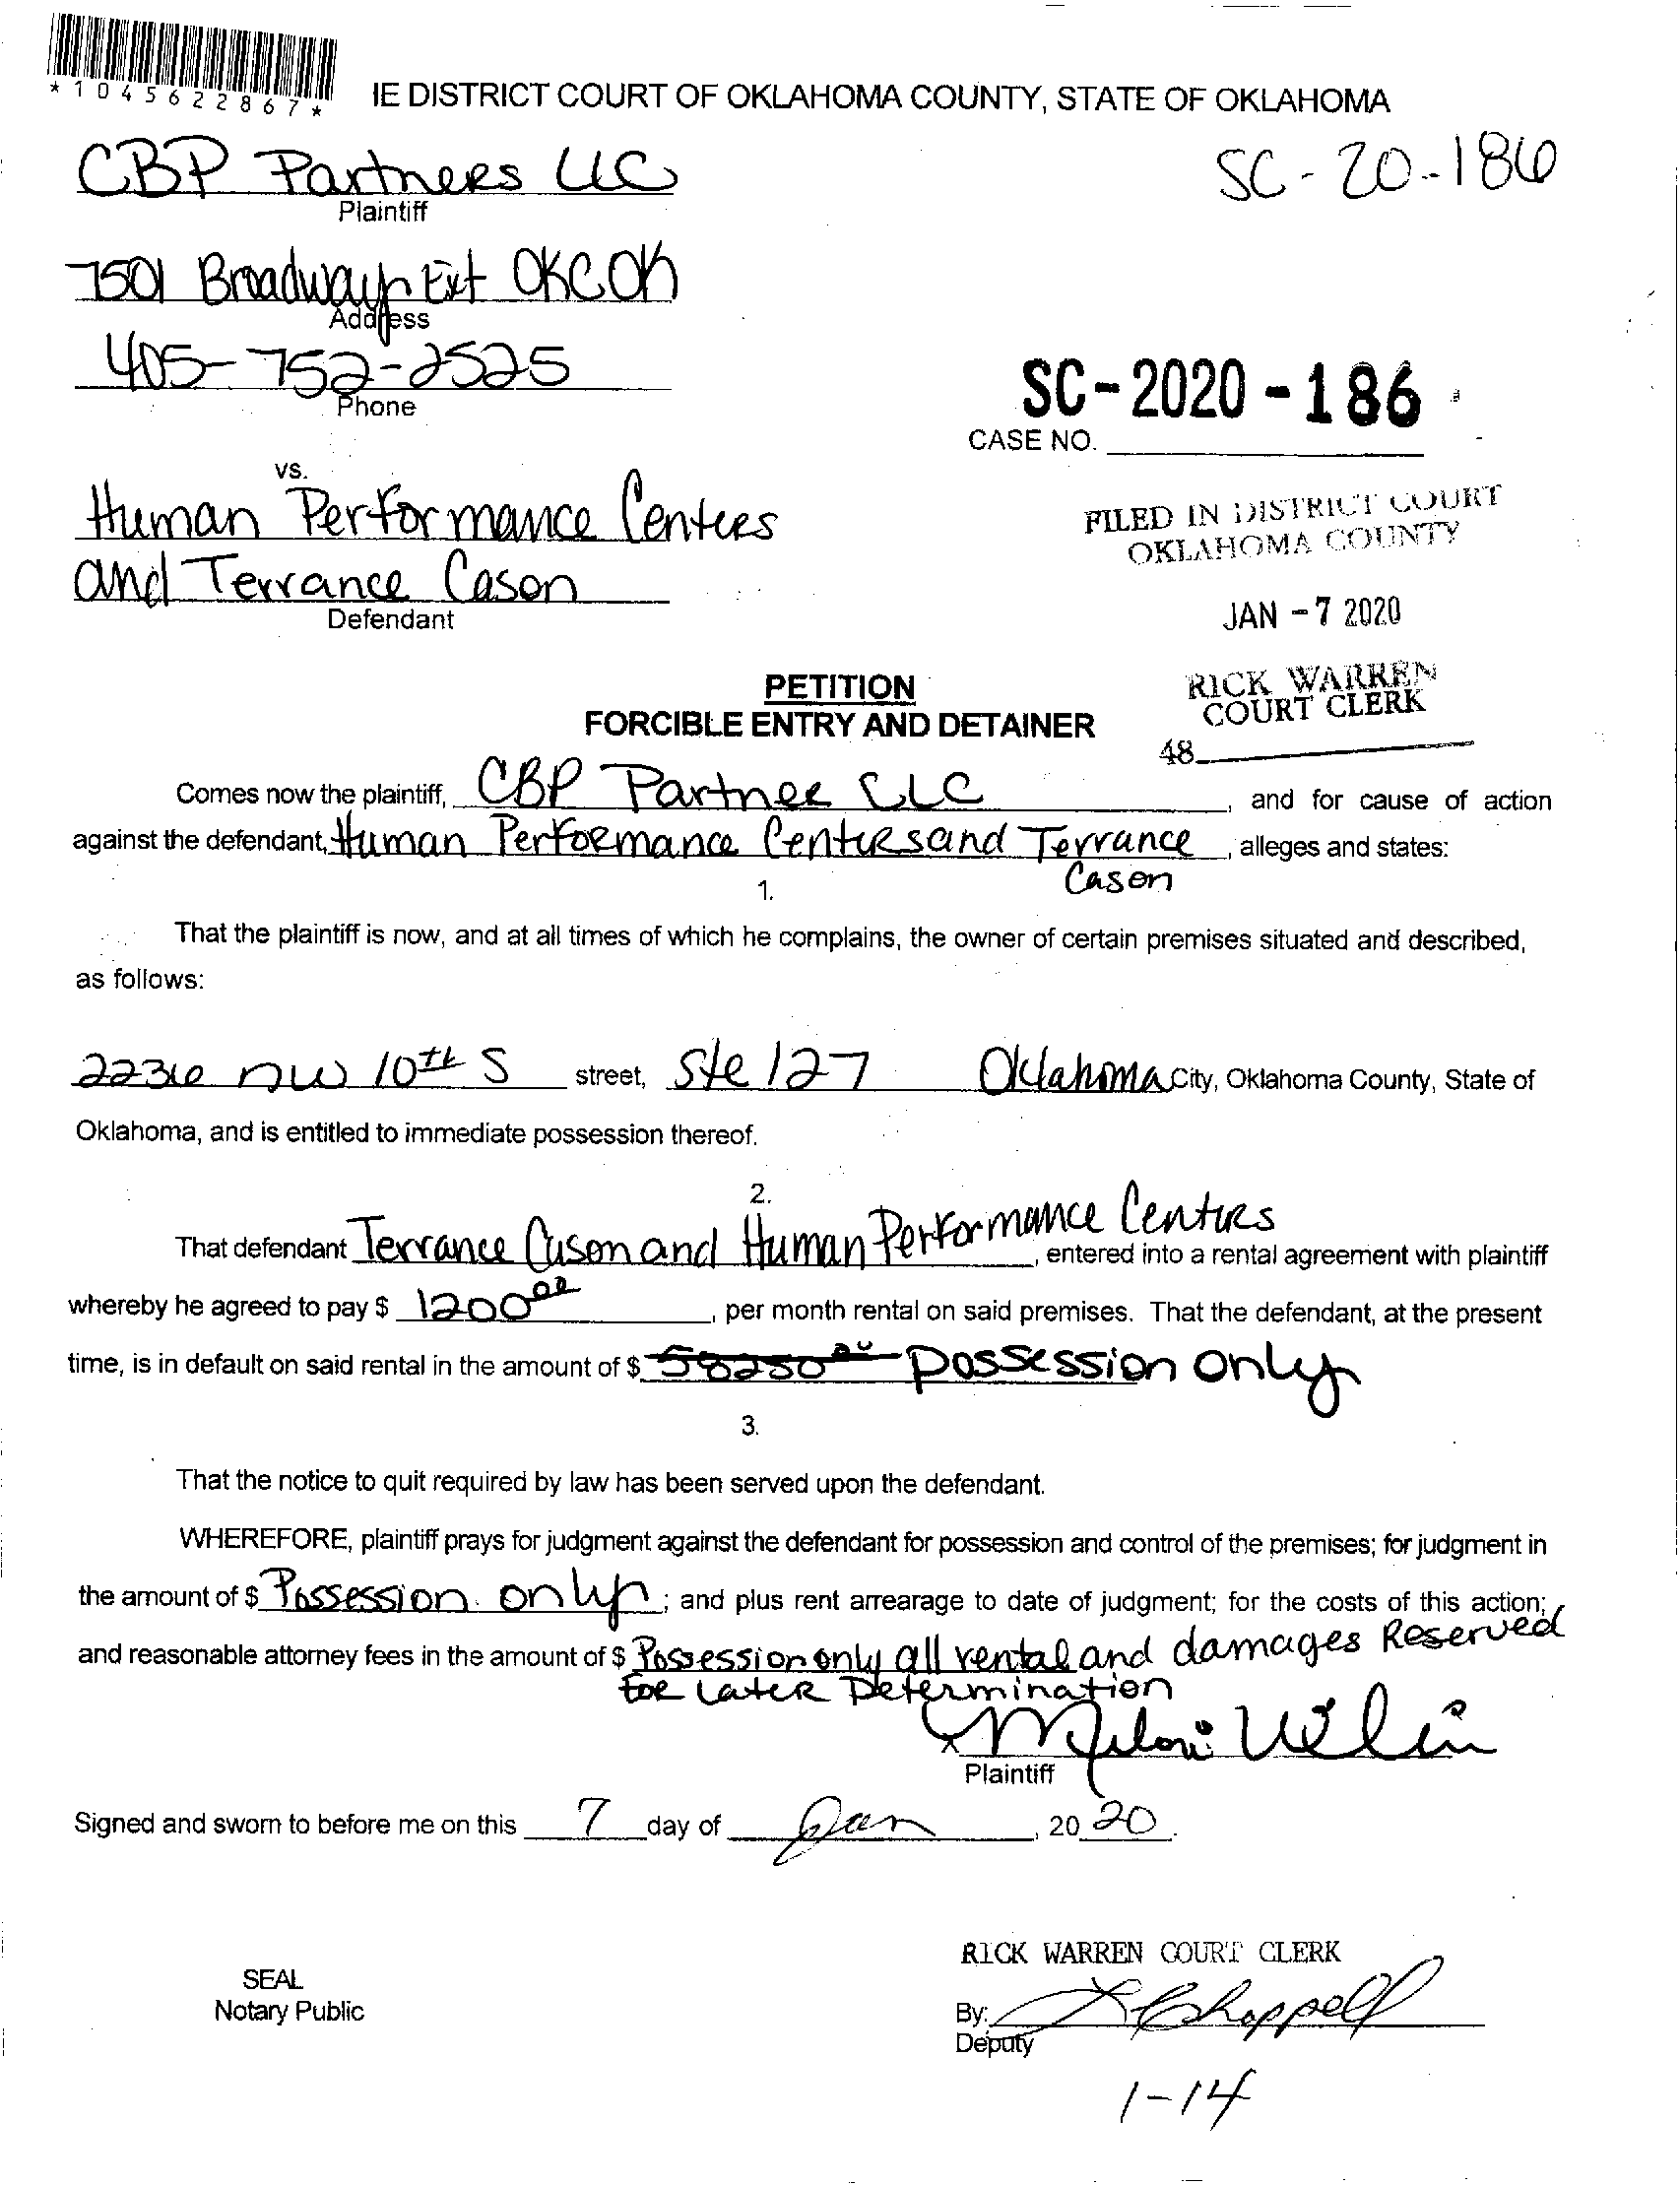 *1045622867*
IE DISTRICT COURT OF OKLAHOMA COUNTY, STATE OF OKLAHOMA
CBP Partners LLC
SC-20-186
Plaintiff
7501 Broadway Ext OKC OK
Address
405-752-2525
Phone
SC-2020-186
CASE NO.
vs.
Human Performance Centers
and Terrance Cason
Defendant
FILED IN DISTRICT COURT
OKLAHOMA COUNTY
JAN -7 2020
RICK WARREN
COURT CLERK
48
PETITION
FORCIBLE ENTRY AND DETAINER
Comes now the plaintiff, CBP Partner LLC, and for cause of action
against the defendant, Human Performance Centers and Terrance, alleges and states:
Cason
1.
That the plaintiff is now, and at all times of which he complains, the owner of certain premises situated and described,
as follows:
2236 NW 10th S street, Ste 127 Oklahoma City, Oklahoma County, State of
Oklahoma, and is entitled to immediate possession thereof.
2.
That defendant Terrance Cason and Human Performance Centers, entered into a rental agreement with plaintiff
whereby he agreed to pay $ 1200 00, per month rental on said premises. That the defendant, at the present
time, is in default on said rental in the amount of $ 58250 00 possession only
3.
That the notice to quit required by law has been served upon the defendant.
WHEREFORE, plaintiff prays for judgment against the defendant for possession and control of the premises; for judgment in
the amount of $ Possession only; and plus rent arrearage to date of judgment; for the costs of this action;
and reasonable attorney fees in the amount of $ Possession only all rental and damages Reserved
For Later Determination
x
Plaintiff
Signed and sworn to before me on this 7 day of Jan, 20 20.
RICK WARREN COURT CLERK
SEAL
Notary Public
By: Chappell
Deputy
1-14